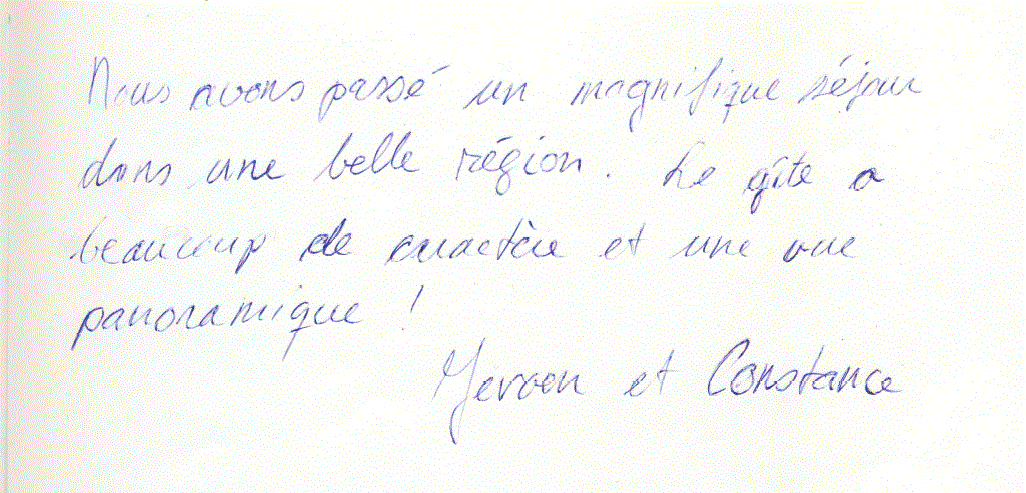 Nous avons passé un magnifique séjour
dans une belle région. Le gîte a
beaucoup de caractère et une vue
panoramique !
Jeroen et Constance